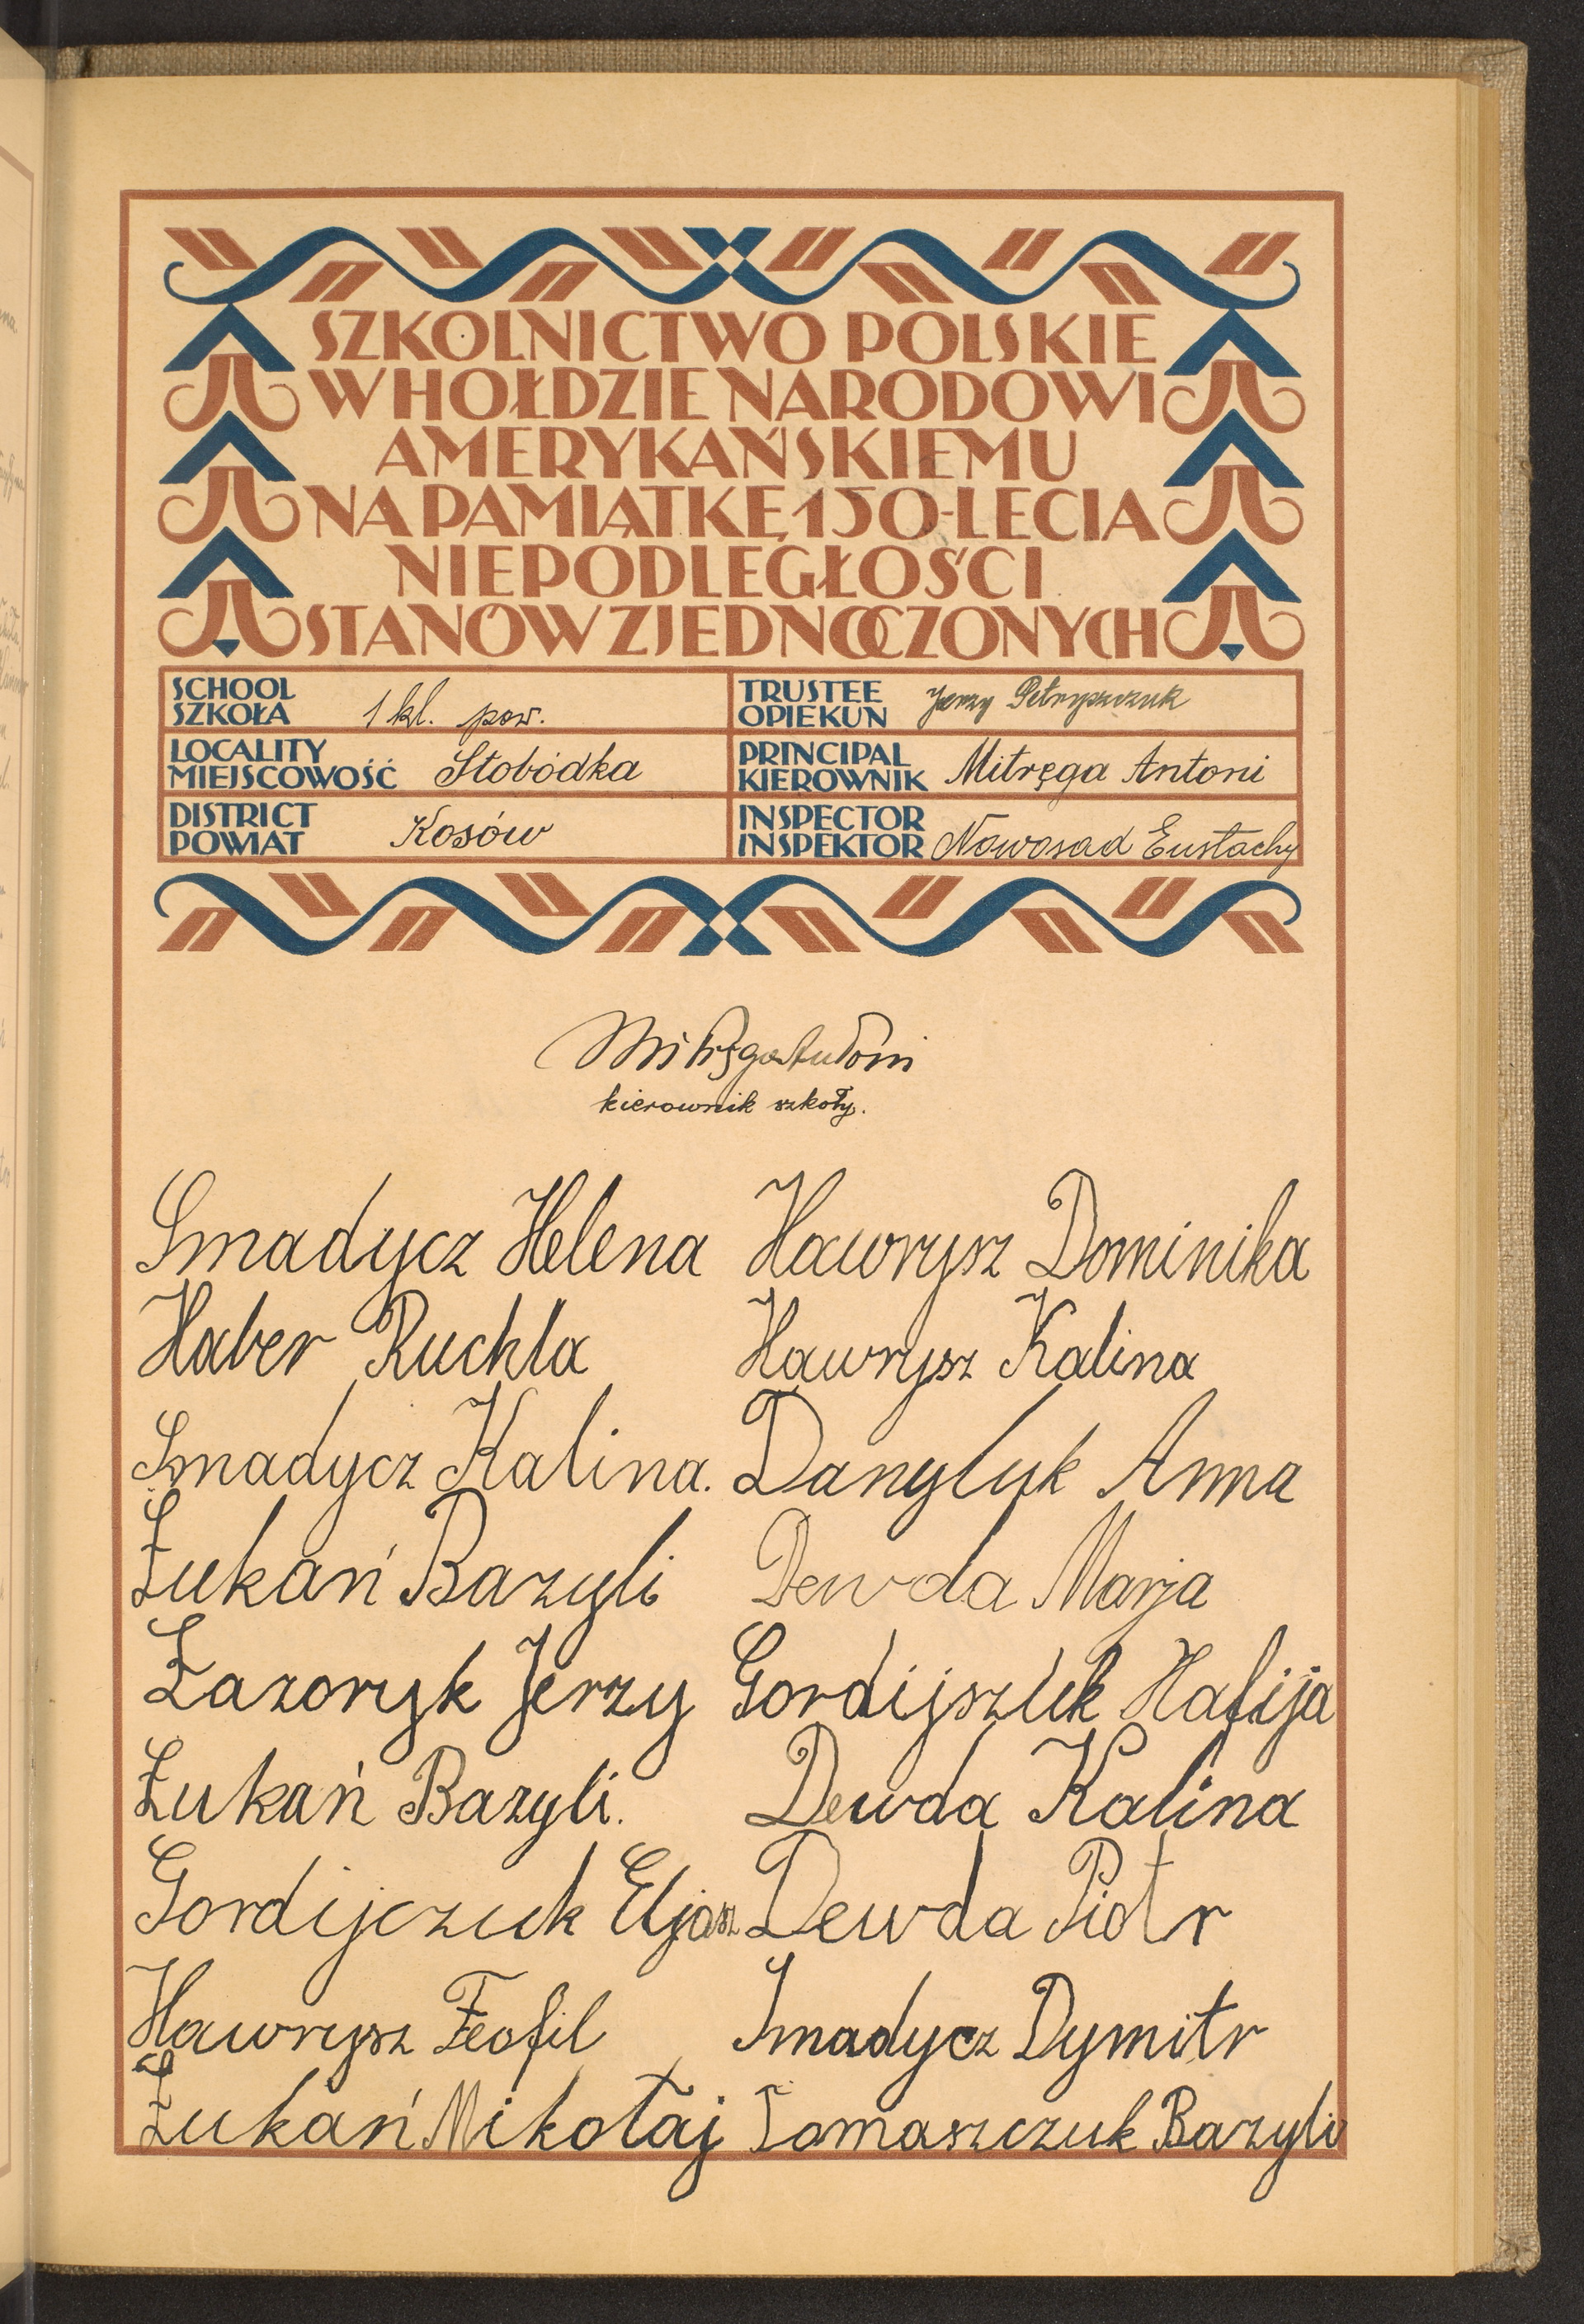 SZKOLNICTWO POLSKIE
W HOŁDZIE NARODOWI
AMERYKAŃSKIEMU
NA PAMIĄTKĘ 150-LECIA
NIEPODLEGŁOŚCI
STANÓW ZJEDNOCZONYCH
SCHOOL
SZKOŁA 1 kl. pow.
TRUSTEE
OPIEKUN Jerzy Petryszczuk
LOCALITY
MIEJSCOWOŚĆ Słobódka
PRINCIPAL
KIEROWNIK Mitręga Antoni
DISTRICT
POWIAT Kosów
INSPECTOR
INSPEKTOR Nowosad Eustachy
Mitręga Antoni
kierownik szkoły.
Smadycz Helena
Haber Ruchla
Smadycz Kalina.
Łukań Bazyli
Łazoryk Jerzy
Łukań Bazyli.
Gordijczuk Eljasz
Hawrysz Teofil
Łukań Mikołaj
Hawrysz Dominika
Hawrysz Kalina
Danyluk Anna
Dewda Marja
Gordijszuk Hafija
Dewda Kalina
Dewda Piotr
Smadycz Dymitr
Tomaszczuk Bazyli